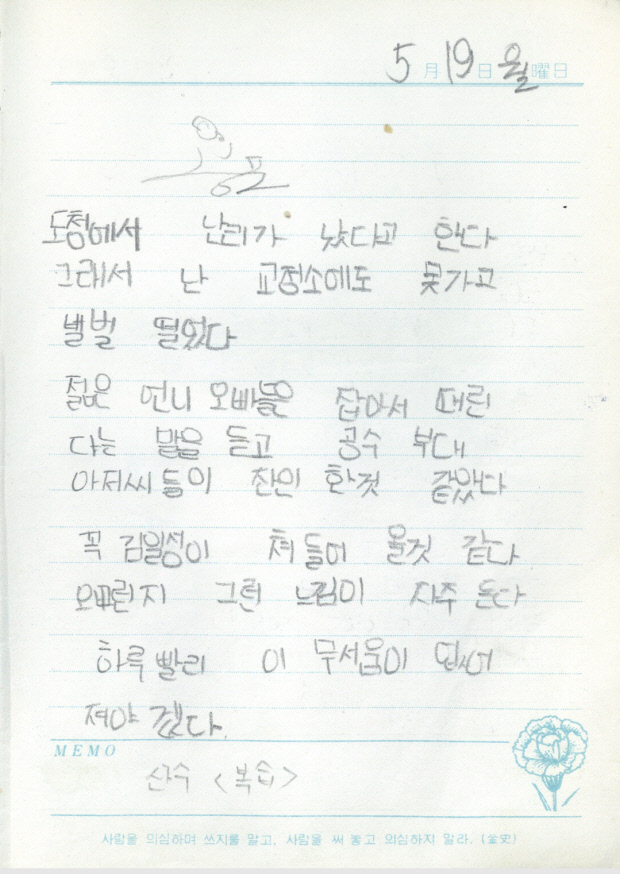 5月 19日 월曜日
공포
도청에서 난리가 났다고 한다
그래서 난 교정소에도 못가고
벌벌 떨었다
젊은 언니 오빠들을 잡아서 때린
다는 말을 듣고 공수 부대
아저씨 들이 잔인 한것 같았다
꼭 김일성이 쳐 들어 올것 같다
그런 느낌이 자주 든다
하루 빨리 이 무서움이 없어
져야 겠다.
MEMO
산수 <복습>
사람을 의심하며 쓰지를 말고, 사람을 써 놓고 의심하지 말라. (金史)